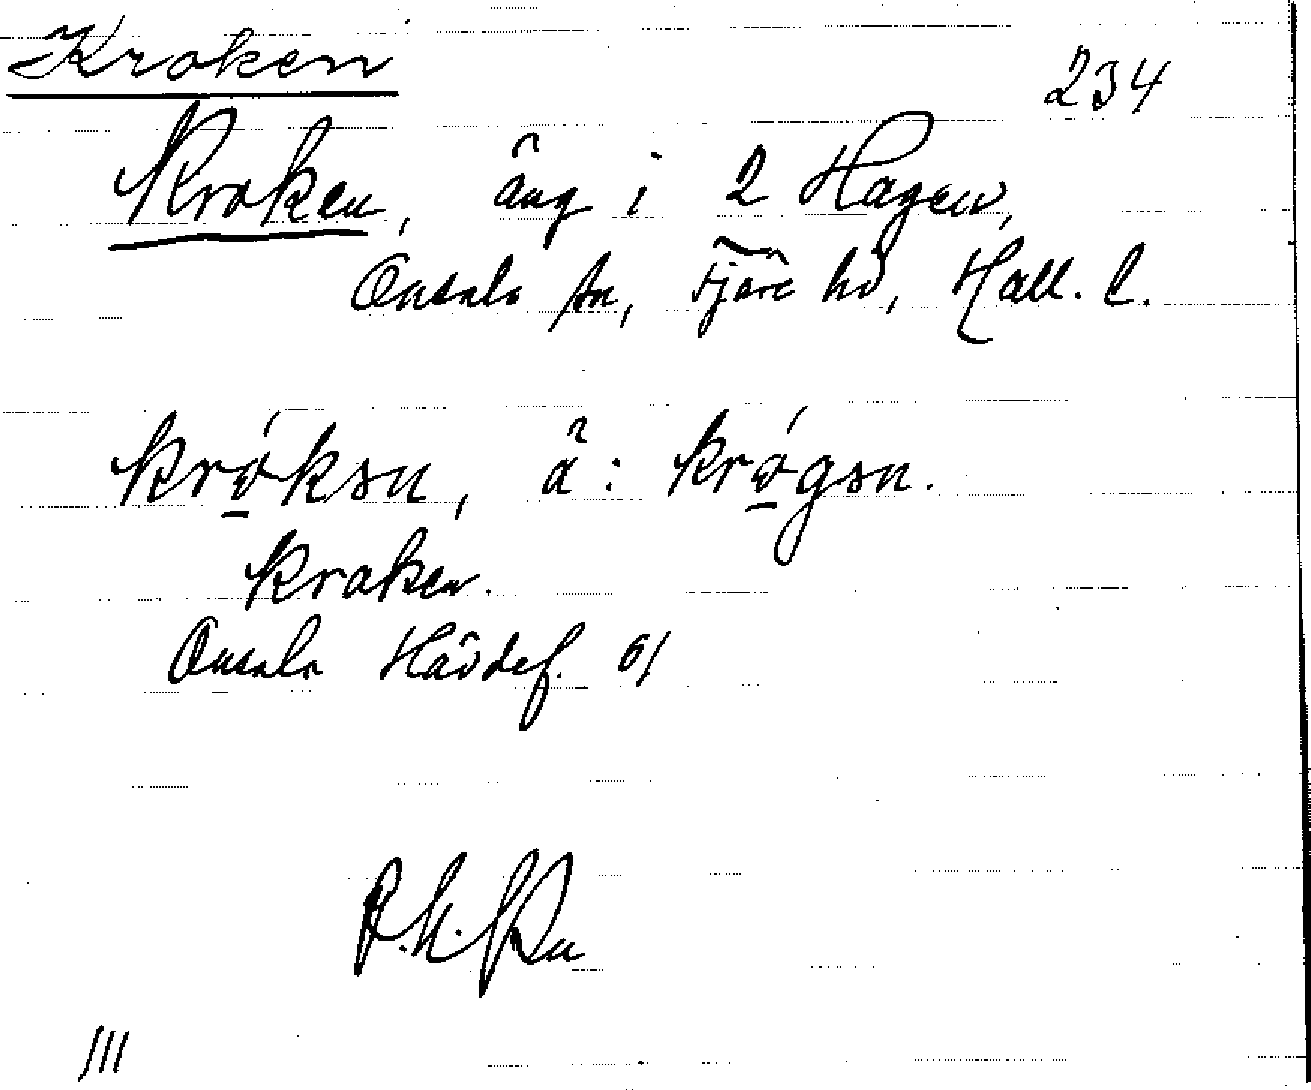 Kroken
234
Kroken, äng i 2 Hagen,
Onsala sn, Fjäre hd, Hall. l.
krǿksn, å: krǿgsn.
kroken.
Onsala Hävdef. 61
III